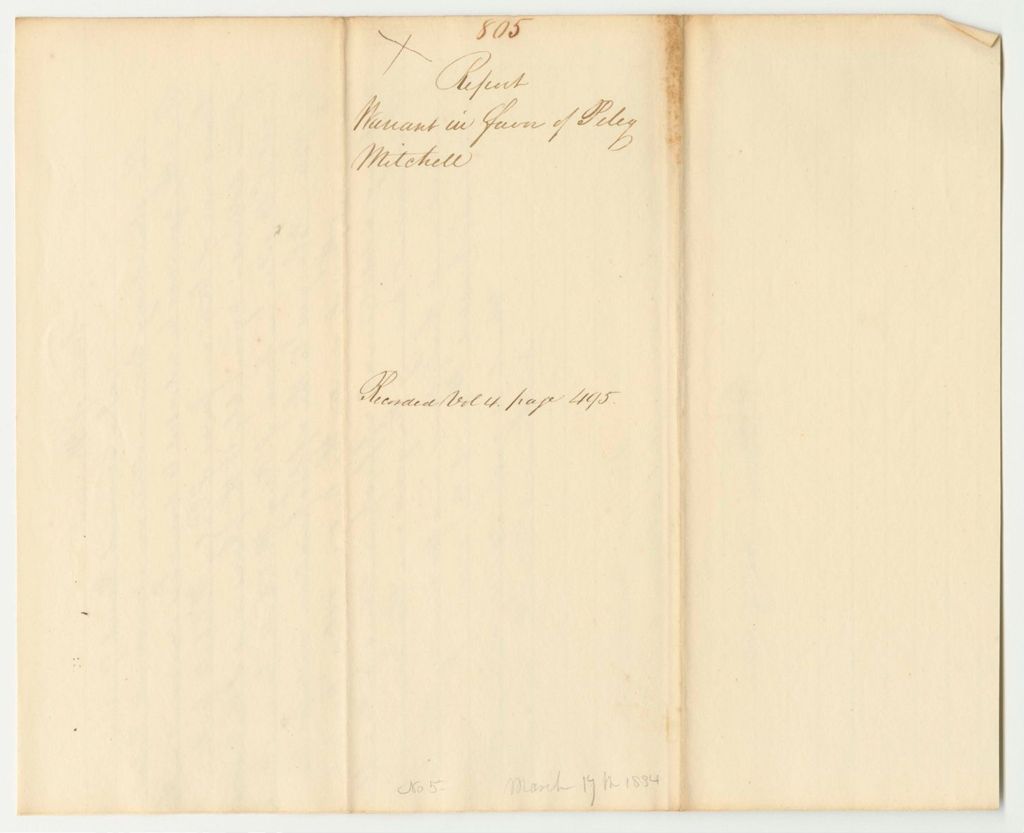 805
Report
Warrant in favor of Peleg
Mitchell
Recorded Vol 4. page 495.
No 5 March 17th 1834